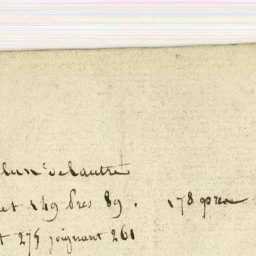 l'un de l'autre
et 149 pres 89. 178 pres
t 275 joignant 261